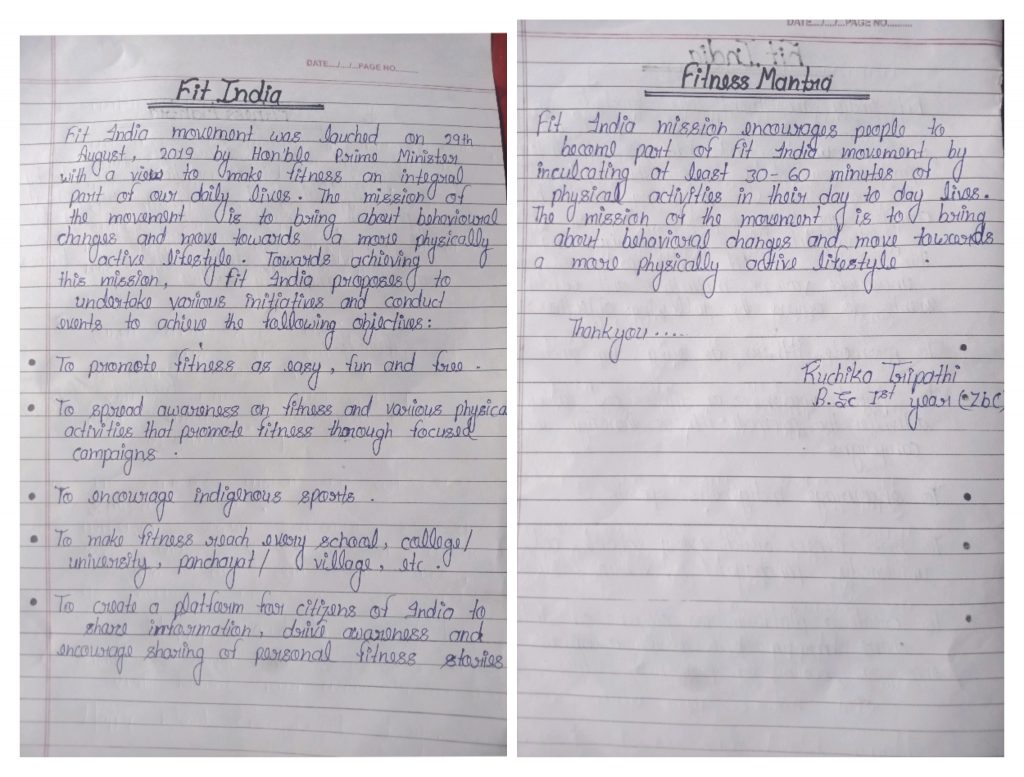 DATE.../.../...PAGE NO.......
Fit India
Fit India movement was lauched on 29th
August, 2019 by Hon'ble Prime Minister
with a view to make fitness an integral
part of our daily lives. The mission of
the movement is to bring about behavioural
changes and move towards a more physically
active lifestyle. Towards achieving
this mission, Fit India proposes to
undertake various initiatives and conduct
events to achieve the following objectives:
• To promote fitness as easy, fun and free.
• To spread awareness on fitness and various physica
activities that promote fitness through focused
campaigns.
• To encourage indigenous sports.
• To make fitness reach every school, college/
university, panchayat/ village, etc.
• To create a platform for citizens of India to
share information, drive awareness and
encourage sharing of personal fitness stories
DATE.../.../...PAGE NO.......
Fitness Mantra
Fit India mission encourages people to
become part of Fit India movement by
inculcating at least 30-60 minutes of
physical activities in their day to day lives.
The mission of the movement is to bring
about behavioral changes and move towards
a more physically active lifestyle.
Thankyou....
Ruchika Tripathi
B.Sc Ist year (ZbC)